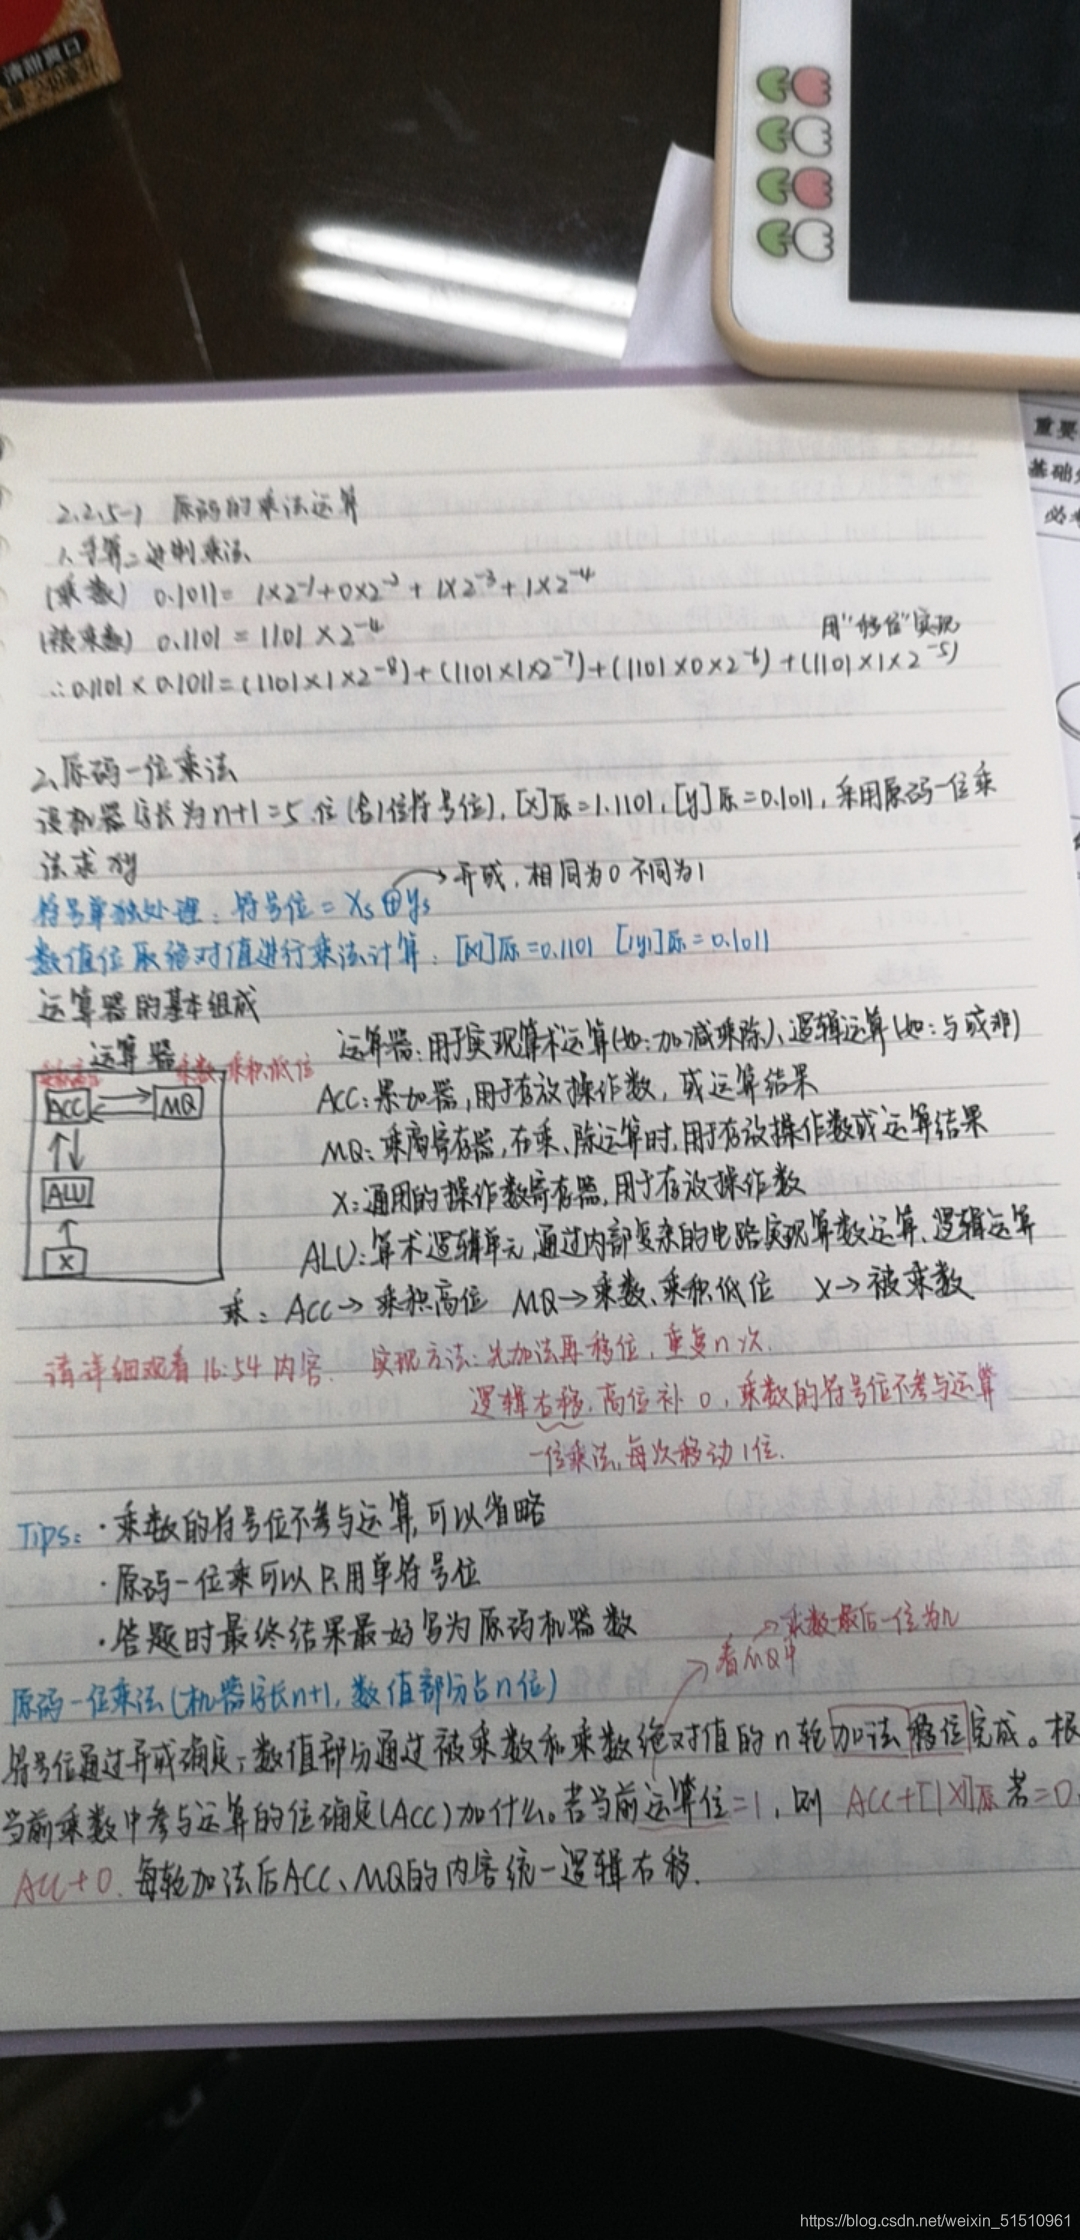 清甜爽口
重要
基础
必考
2.2.5-1 原码的乘法运算
1、手算二进制乘法
(乘数) 0.1011= 1×2⁻¹+0×2⁻² + 1×2⁻³+1×2⁻⁴
(被乘数) 0.1101 = 1101 ×2⁻⁴
用"移位"实现
∴0.1101 × 0.1011=(1101×1×2⁻⁸)+(1101×1×2⁻⁷)+(1101×0×2⁻⁶)+(1101×1×2⁻⁵)
2、原码一位乘法
设机器字长为n+1=5位(含1位符号位), [x]原=1.1101, [y]原=0.1011, 采用原码一位乘
法求xy
异或, 相同为0 不同为1
符号单独处理: 符号位 = Xs⊕ys
数值位取绝对值进行乘法计算: [|x|]原=0.1101 [|y|]原=0.1011
运算器的基本组成
运算器
乘数、乘积低位
ACC
MQ
ALU
X
运算器:用于实现算术运算(如:加减乘除)、逻辑运算(如:与或非)
ACC:累加器,用于存放操作数, 或运算结果
MQ:乘商寄存器,在乘、除运算时,用于存放操作数或运算结果
X:通用的操作数寄存器,用于存放操作数
ALU:算术逻辑单元,通过内部复杂的电路实现算数运算、逻辑运算
乘: ACC→乘积高位 MQ→乘数、乘积低位 X→被乘数
请详细观看16:54内容. 实现方法:先加法再移位, 重复n次.
逻辑右移, 高位补0, 乘数的符号位不参与运算
一位乘法,每次移动1位.
Tips: ·乘数的符号位不参与运算,可以省略
·原码一位乘可以只用单符号位
·答题时最终结果最好写为原码机器数
看MQ中
→乘数最后一位为
原码一位乘法(机器字长n+1, 数值部分占n位)
符号位通过异或确定;数值部分通过被乘数和乘数绝对值的n轮加法移位完成。根
当前乘数中参与运算的位确定(ACC)加什么。若当前运算位=1, 则 ACC+[|X|]原 若=0.
ACC+0. 每轮加法后ACC、MQ的内容统一逻辑右移.
https://blog.csdn.net/weixin_51510961